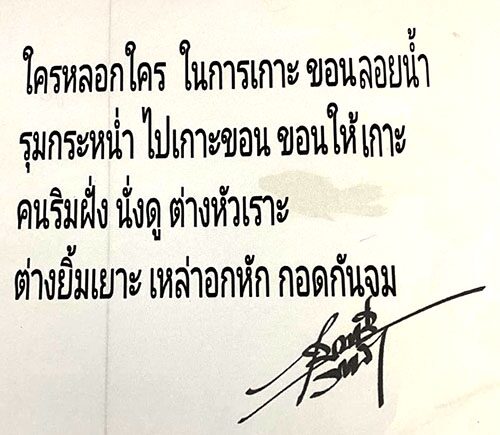 ใครหลอกใคร ในการเกาะ ขอนลอยน้ำ
รุมกระหน่ำ ไปเกาะขอน ขอนให้เกาะ
คนริมฝั่ง นั่งดู ต่างหัวเราะ
ต่างยิ้มเยาะ เหล่าอกหัก กอดกันจม